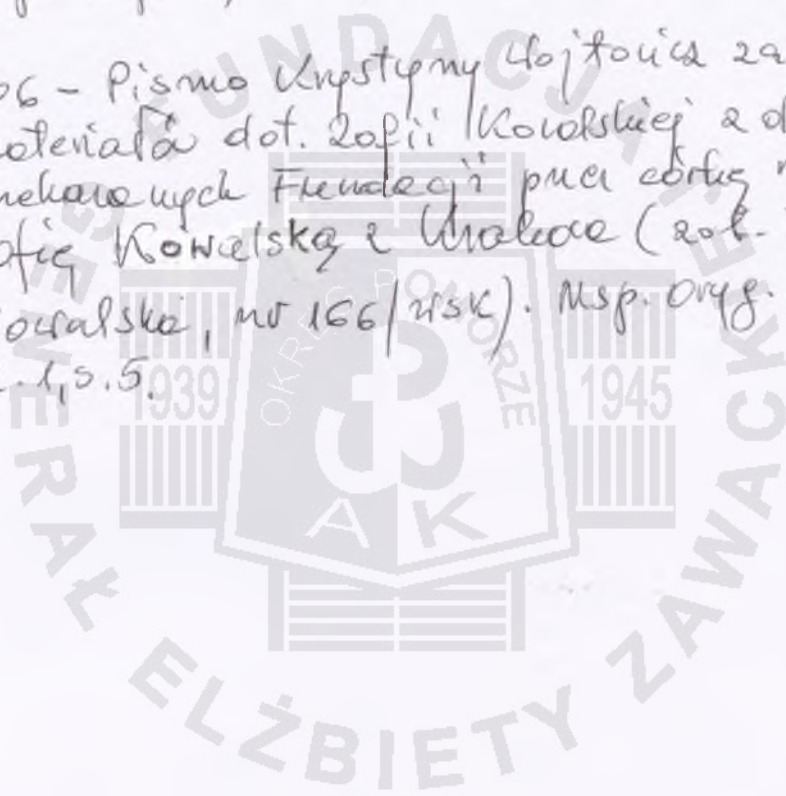 06 - Pismo Krystyny Wojtowicz za
materiału dot. Zofii Kowalskiej z d
nekazanych Fundacji przez córkę
ofię Kowalską z Krakowa (zob.
owalska, nr 166/WSK). Msp. Oryg.
1, s. 5.
FUNDACJA
GENERAŁ ELŻBIETY ZAWACKIEJ
OKRĘG POMORZE
1939
1945
AK